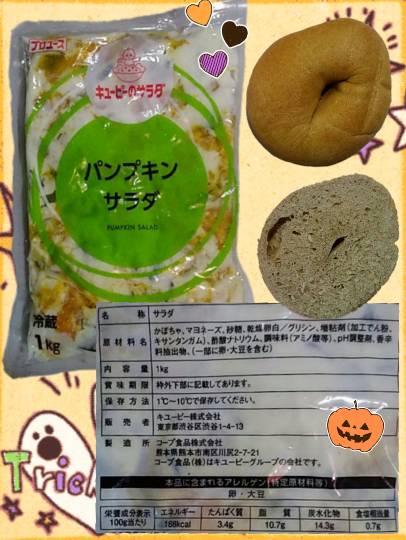 プロユース
キユーピーのサラダ
パンプキン
サラダ
PUMPKIN SALAD
冷蔵
1kg
名称 サラダ
原材料名 かぼちゃ、マヨネーズ、砂糖、乾燥卵白/グリシン、増粘剤(加工でん粉、
キサンタンガム)、酢酸ナトリウム、調味料(アミノ酸等)、pH調整剤、香辛
料抽出物、(一部に卵・大豆を含む)
内容量 1kg
賞味期限 枠外下部に記載してあります。
保存方法 1℃〜10℃で保存してください。
販売者 キユーピー株式会社
東京都渋谷区渋谷1-4-13
製造所 コープ食品株式会社
熊本県熊本市南区川尻2-7-21
コープ食品(株)はキユーピーグループの会社です。
本品に含まれるアレルゲン(特定原材料等)
卵・大豆
栄養成分表示 エネルギー たんぱく質 脂質 炭水化物 食塩相当量
100g当たり 168kcal 3.4g 10.7g 14.3g 0.7g
Trick